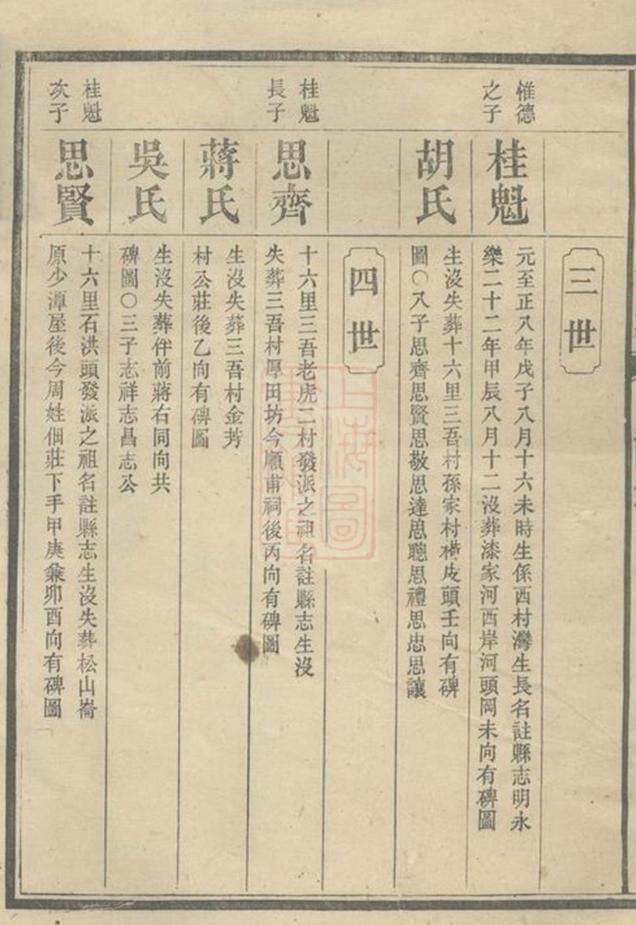 三世
惟德
之子
桂魁
元至正八年戊子八月十六未時生係西村灣生長名註縣志明永
樂二十二年甲辰八月十二沒葬漆家河西岸河頭岡未向有碑圖
胡氏
生沒失葬十六里三吾村孫家村橫皮頭壬向有碑
圖○八子思齊思賢思敬思達思聰思禮思忠思讓
四世
桂魁
長子
思齊
十六里三吾老虎二村發派之祖名註縣志生沒
失葬三吾村厚田坊今順甫祠後丙向有碑圖
蔣氏
生沒失葬三吾村金芳
村公莊後乙向有碑圖
吳氏
生沒失葬伴前蔣右同向共
碑圖○三子志祥志昌志公
桂魁
次子
思賢
十六里石洪頭發派之祖名註縣志生沒失葬松山崙
原少潭屋後今周姓佃莊下手甲庚兼卯酉向有碑圖